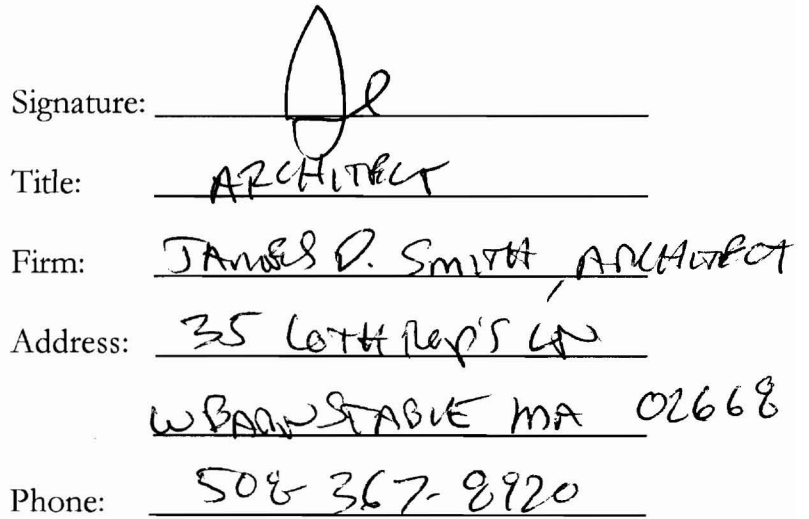 Signature:
Title: ARCHITECT
Firm: JAMES D. SMITH, ARCHITECT
Address: 35 LOTHROP'S LN
W BARNSTABLE MA 02668
Phone: 508-367-8920